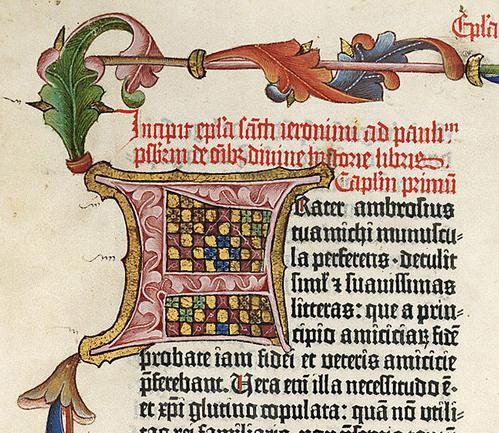 Ep̄la
Incipit ep̄la sc̄ti ieronimi ad paulinū
p̄sbiterum de om̄ibꝫ diuine historie libris
Capłm primū
FRater ambrosius
tua michi munuscu=
la perferens· detulit
siml̄ ⁊ suauissimas
litteras: que a prin=
cipio amiciciarꝝ fidē
probate iam fidei et veteris amicicie
p̄ferebant. Vera em̄ illa necessitudo ē·
et xp̄i glutino copulata: quā nō vtili=
tas rei familiaris